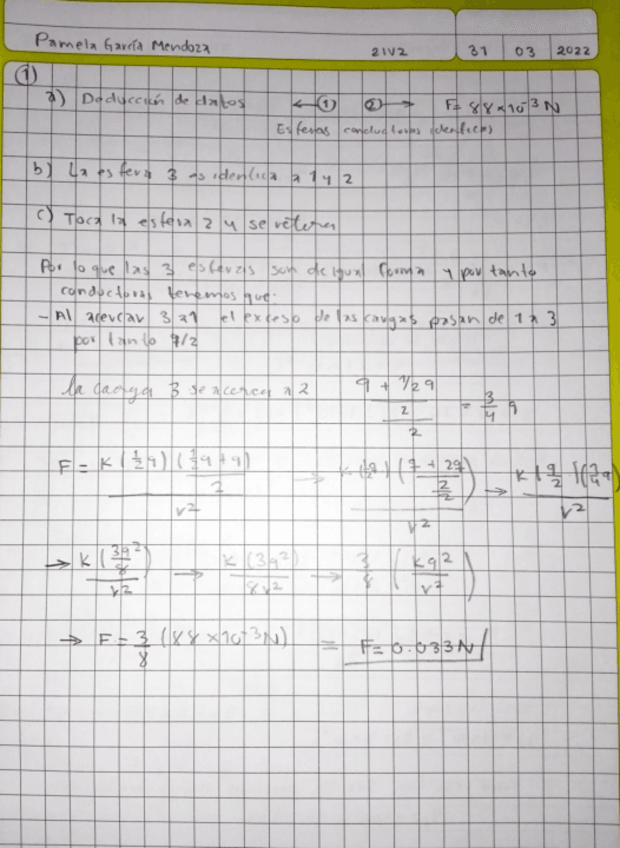 Pamela García Mendoza 21V2 31 03 2022
1)
a) Deducción de datos ← ① ② → F= 88×10⁻³ N
Esferas conductoras identicas
b) La esfera 3 es identica a 1 y 2
c) Toca la esfera 2 y se retira
Por lo que las 3 esferas son de igual forma y por tanto
conductoras tenemos que:
- Al acercar 3 a 1 el exceso de las cargas pasan de 1 a 3
por tanto q/2
la carga 3 se acerca a 2 q + 1/2 q / 2 / 2 = 3/4 q
F = K (1/2 q) (1/2 q + q / 2) / r² → K (q/2) (q + 2q / 2 / 2) / r² → K (q/2) (3/4 q) / r²
→ K (3q²/8) / r² → K (3q²) / 8r² → 3/8 (Kq² / r²)
→ F = 3/8 (88×10⁻³N) = F= 0.033N